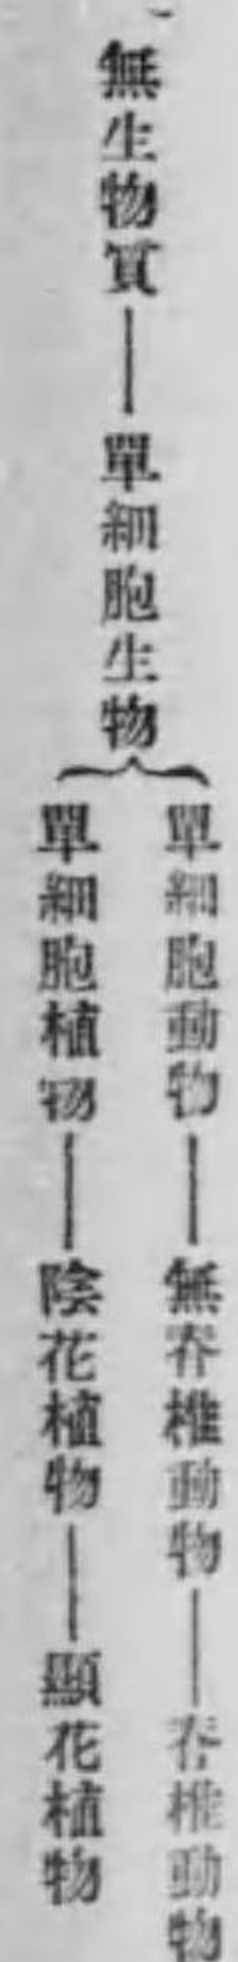 無生物質——單細胞生物
單細胞動物——無脊椎動物——脊椎動物
單細胞植物——陰花植物——顯花植物